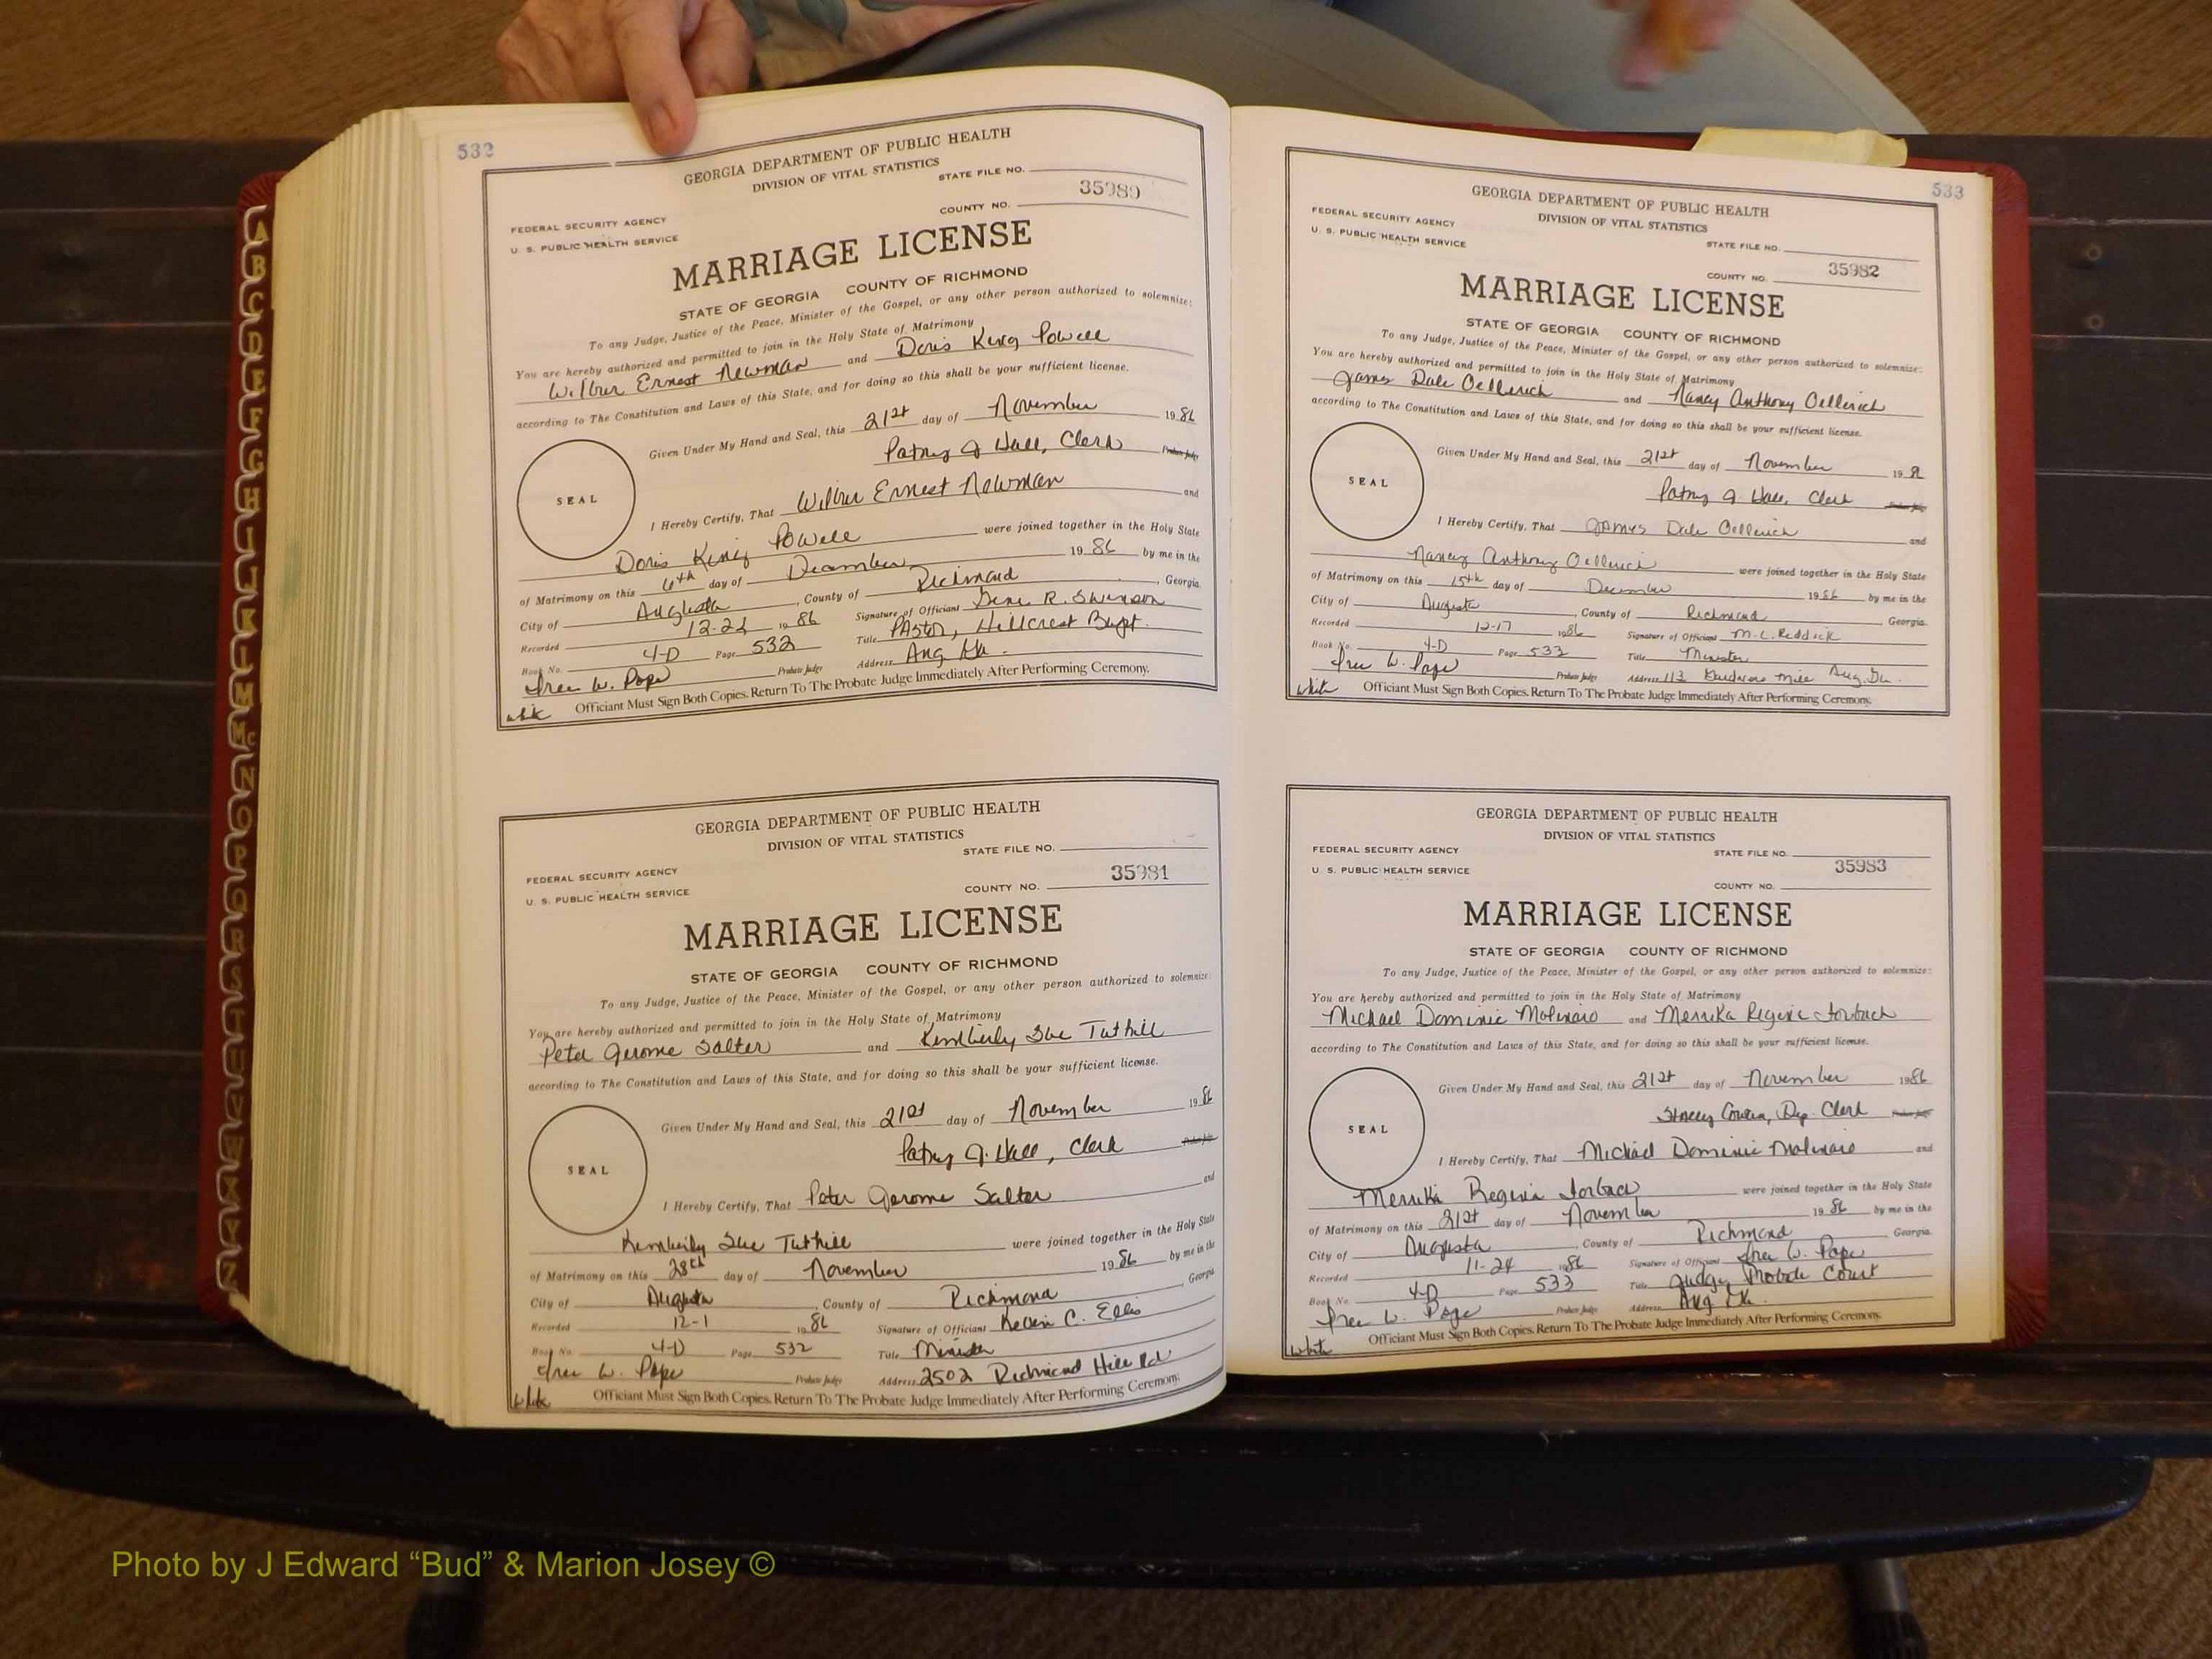 532
GEORGIA DEPARTMENT OF PUBLIC HEALTH
DIVISION OF VITAL STATISTICS
STATE FILE NO.
FEDERAL SECURITY AGENCY
U. S. PUBLIC HEALTH SERVICE
COUNTY NO.
MARRIAGE LICENSE
STATE OF GEORGIA COUNTY OF RICHMOND
To any Judge, Justice of the Peace, Minister of the Gospel, or any other person authorized to solemnize:
You are hereby authorized and permitted to join in the Holy State of Matrimony
Wilbur Ernest Newman and Doris King Powell
according to The Constitution and Laws of this State, and for doing so this shall be your sufficient license.
Given Under My Hand and Seal, this 21st day of November 1986
Hall, Clerk Probate Judge
SEAL
I Hereby Certify, That Wilbur Ernest Newman and
Doris King Powell were joined together in the Holy State
of Matrimony on this day of December 1986 by me in the
City of Augusta, County of Richmond, Georgia.
Recorded 1986 Signature of Officiant Gene R. Swinson
Book No. 4-D Page 532 Title Pastor, Hillcrest Bapt.
Probate Judge Address Aug Ga.
W. Pope
white Officiant Must Sign Both Copies. Return To The Probate Judge Immediately After Performing Ceremony.
GEORGIA DEPARTMENT OF PUBLIC HEALTH
DIVISION OF VITAL STATISTICS
STATE FILE NO.
FEDERAL SECURITY AGENCY
U. S. PUBLIC HEALTH SERVICE
35981
COUNTY NO.
MARRIAGE LICENSE
STATE OF GEORGIA COUNTY OF RICHMOND
To any Judge, Justice of the Peace, Minister of the Gospel, or any other person authorized to solemnize:
You are hereby authorized and permitted to join in the Holy State of Matrimony
Peter Jerome Salter and Kimberly Sue Tuthill
according to The Constitution and Laws of this State, and for doing so this shall be your sufficient license.
Given Under My Hand and Seal, this 21st day of November 1986
J. Hall, Clerk Probate Judge
SEAL
I Hereby Certify, That Peter Jerome Salter and
Kimberly Sue Tuthill were joined together in the Holy State
of Matrimony on this 28th day of November 1986 by me in the
City of Augusta, County of Richmond Georgia
Recorded 12-1 1986 Signature of Officiant Kevin C. Ellis
Book No. 4-D Page 532 Title Minister
W. Pope Probate Judge Address 2502 Richmond Hill Rd
white Officiant Must Sign Both Copies. Return To The Probate Judge Immediately After Performing Ceremony.
533
GEORGIA DEPARTMENT OF PUBLIC HEALTH
DIVISION OF VITAL STATISTICS
FEDERAL SECURITY AGENCY
U. S. PUBLIC HEALTH SERVICE
STATE FILE NO.
35982
COUNTY NO.
MARRIAGE LICENSE
STATE OF GEORGIA COUNTY OF RICHMOND
To any Judge, Justice of the Peace, Minister of the Gospel, or any other person authorized to solemnize:
You are hereby authorized and permitted to join in the Holy State of Matrimony
James Dale Oellerich and Nancy Anthony Oellerich
according to The Constitution and Laws of this State, and for doing so this shall be your sufficient license.
Given Under My Hand and Seal, this 21st day of November 19
J. Hall, Clerk Probate Judge
SEAL
I Hereby Certify, That James Dale Oellerich and
Nancy Anthony Oellerich were joined together in the Holy State
of Matrimony on this 15th day of December 1986 by me in the
City of Augusta, County of Richmond Georgia.
Recorded 12-17 1986 Signature of Officiant M. L. Reddick
Book No. 4-D Page 533 Title Minister
W. Pope Probate Judge Address 113 Mill Aug. Ga.
white Officiant Must Sign Both Copies. Return To The Probate Judge Immediately After Performing Ceremony.
GEORGIA DEPARTMENT OF PUBLIC HEALTH
DIVISION OF VITAL STATISTICS
FEDERAL SECURITY AGENCY
U. S. PUBLIC HEALTH SERVICE
STATE FILE NO.
35983
COUNTY NO.
MARRIAGE LICENSE
STATE OF GEORGIA COUNTY OF RICHMOND
To any Judge, Justice of the Peace, Minister of the Gospel, or any other person authorized to solemnize:
You are hereby authorized and permitted to join in the Holy State of Matrimony
Michael Dominic Molinaro and Merrika Regina
according to The Constitution and Laws of this State, and for doing so this shall be your sufficient license.
Given Under My Hand and Seal, this 21st day of November 1986
Dep. Clerk Probate Judge
SEAL
I Hereby Certify, That Michael Dominic Molinaro and
Merrika Regina were joined together in the Holy State
of Matrimony on this 21st day of November 1986 by me in the
City of Augusta, County of Richmond Georgia.
Recorded 11-24 1986 Signature of Officiant W. Pope
Book No. 4-D Page 533 Title Judge, Probate Court
W. Pope Probate Judge Address Aug Ga.
white Officiant Must Sign Both Copies. Return To The Probate Judge Immediately After Performing Ceremony.
Photo by J Edward “Bud” & Marion Josey ©